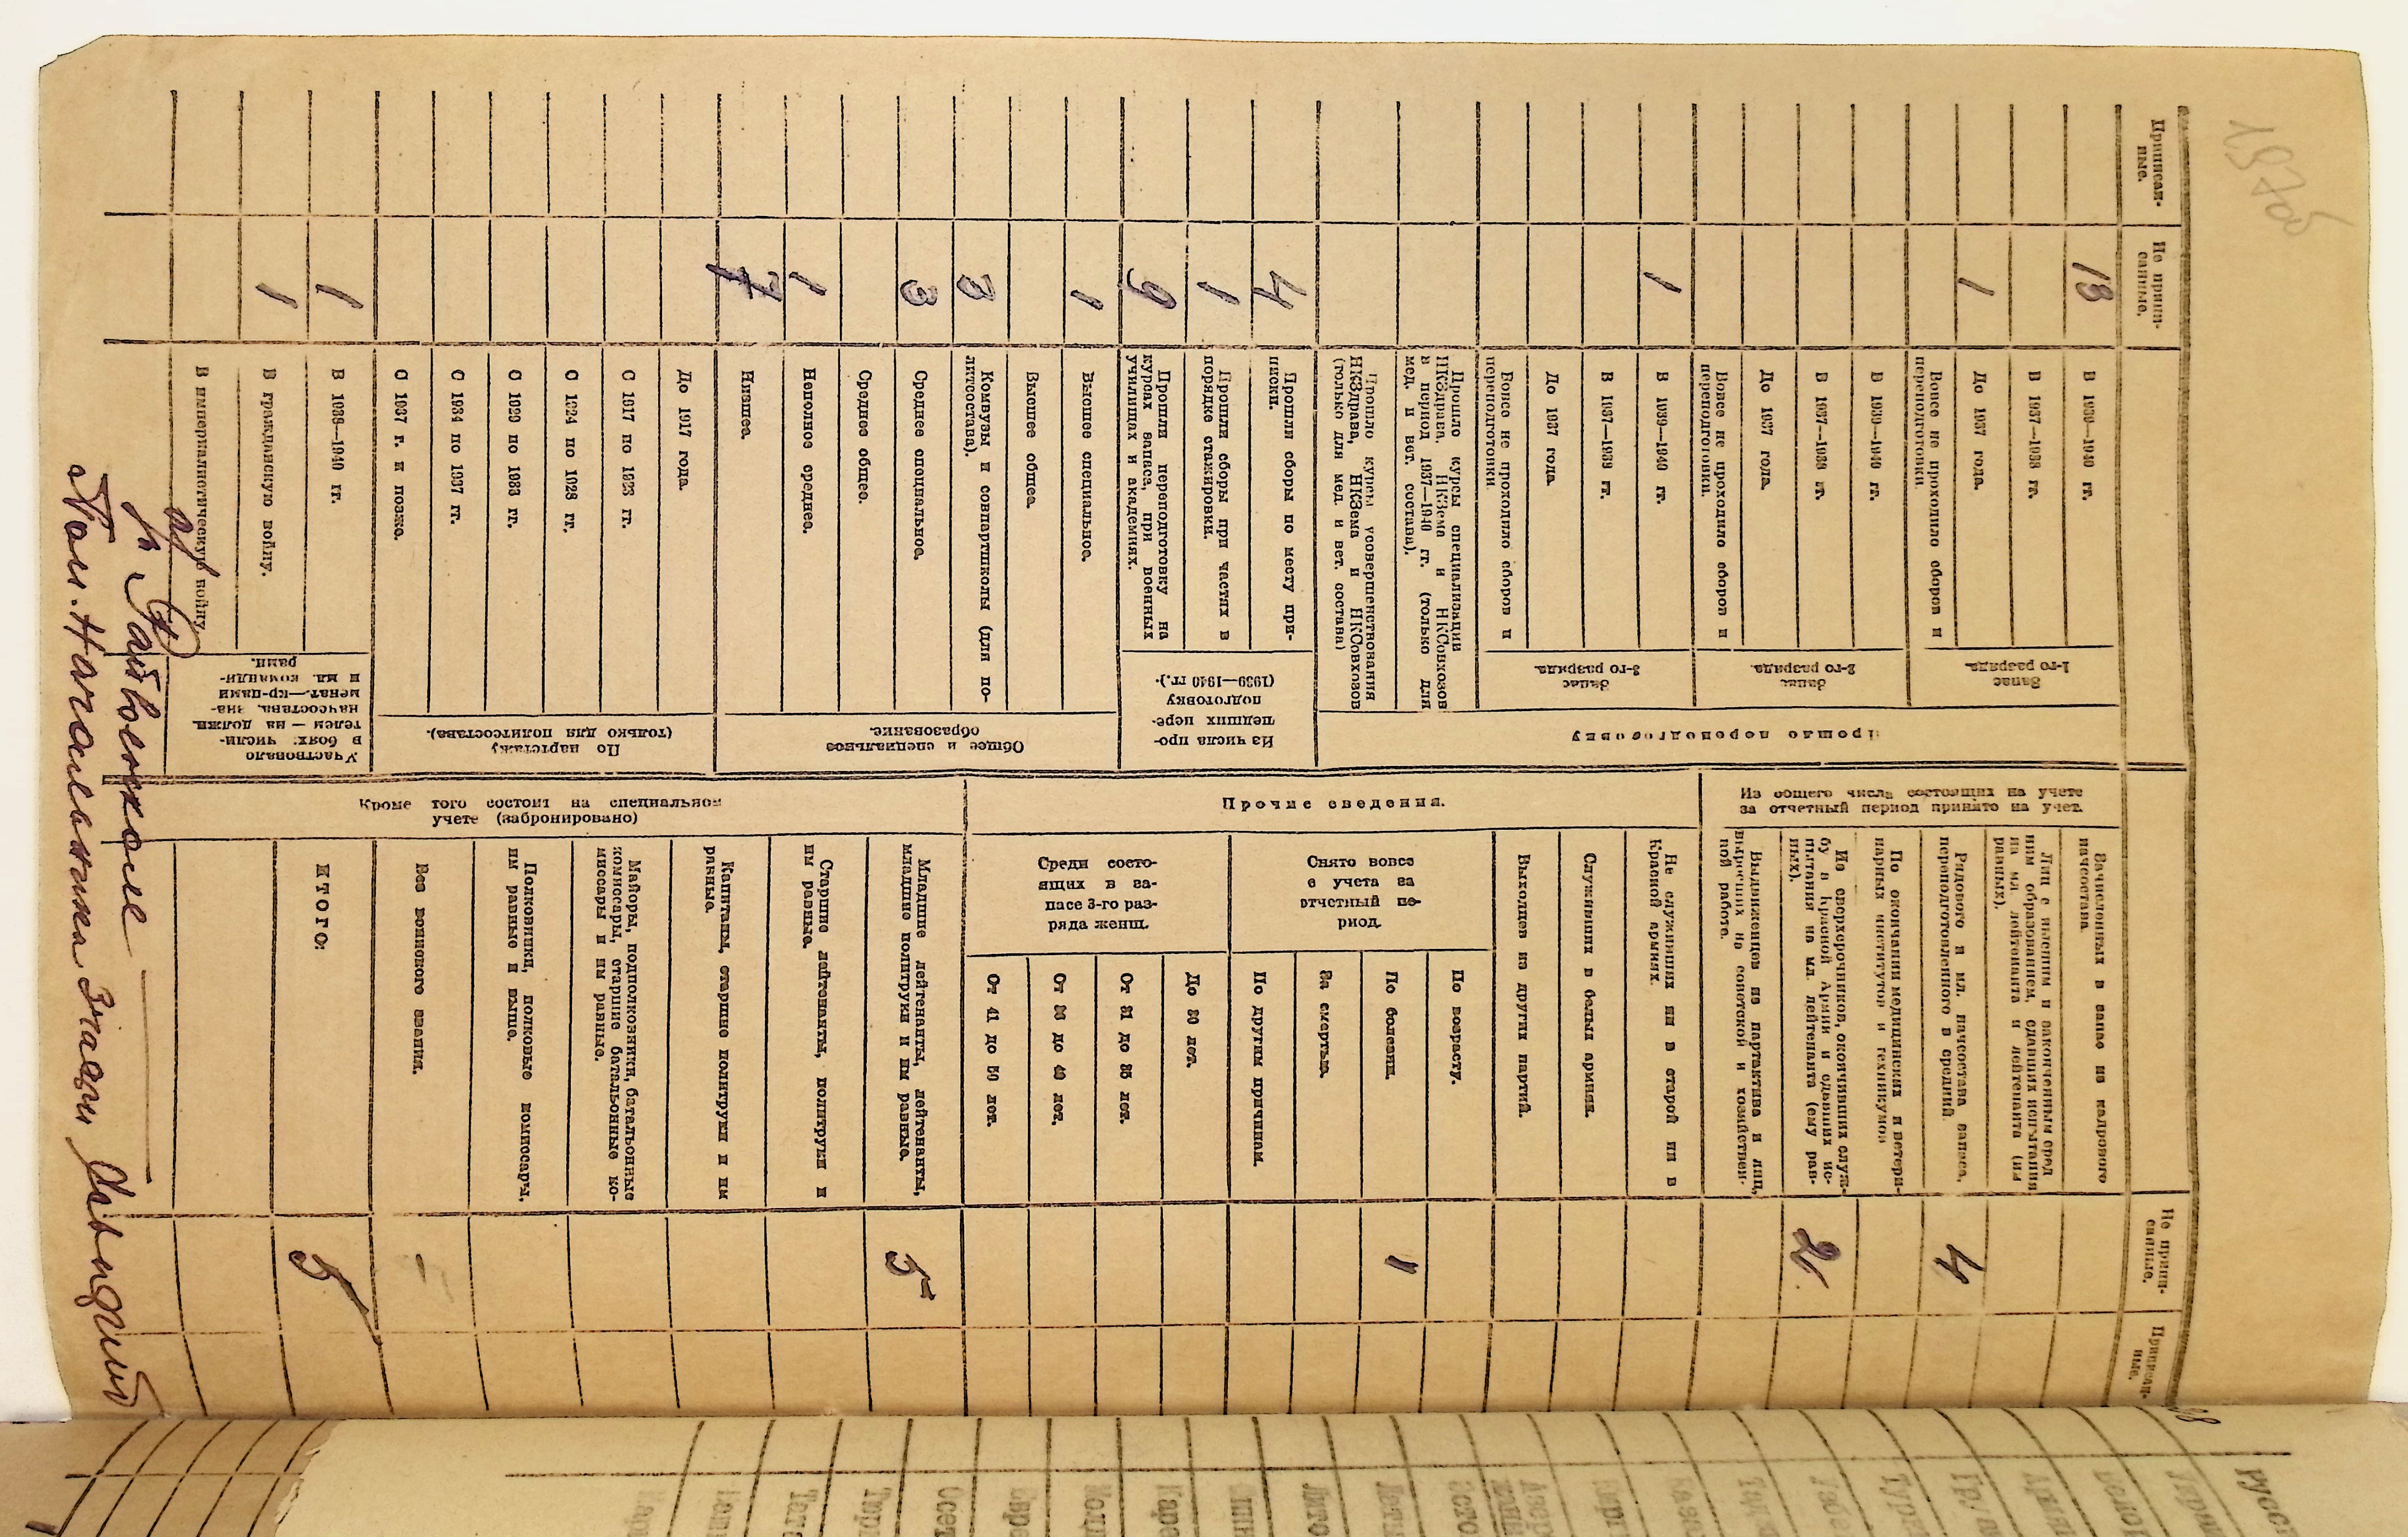 Приписан-
ные.
Не припи-
санные.
Прошло переподготовку
Запас
1-го разряда.
В 1939—1940 гг.
13
В 1937—1938 гг.
До 1937 года.
1
Вовсе не проходило сборов и
переподготовки.
Запас
2-го разряда.
В 1939—1940 гг.
В 1937—1938 гг.
До 1937 года.
Вовсе не проходило сборов и
переподготовки.
Запас
3-го разряда.
В 1939—1940 гг.
1
В 1937—1938 гг.
До 1937 года.
Вовсе не проходило сборов и
переподготовки.
Прошло курсы специализации
НКЗдрава, НКЗема и НКСовхозов
в период 1937—1940 гг. (только для
мед. и вет. состава).
Прошло курсы усовершенствования
НКЗдрава, НКЗема и НКСовхозов
(только для мед. и вет. состава)
Из числа про-
шедших пере-
подготовку
(1939—1940 гг.).
Прошли сборы по месту при-
писки.
4
Прошли сборы при частях в
порядке стажировки.
1
Прошли переподготовку на
курсах запаса, при военных
училищах и академиях.
9
Общее и специальное
образование.
Высшее специальное.
1
Высшее общее.
Комвузы и совпартшколы (для по-
литсостава).
3
Среднее специальное.
3
Среднее общее.
Неполное среднее.
1
Низшее.
7
По партстажу
(только для политсостава).
До 1917 года.
С 1917 по 1923 гг.
С 1924 по 1928 гг.
С 1929 по 1933 гг.
С 1934 по 1937 гг.
С 1937 г. и позже.
Участвовало
в боях: числи-
телем — на должн.
начсостава, зна-
менат.—кр-цами
и мл. команди-
рами.
В 1938—1940 гг.
1
В гражданскую войну.
1
В империалистическую войну.
Не припи-
санные.
Приписан-
ные.
Из общего числа состоящих на учете
за отчетный период принято на учет.
Зачисленных в запас из кадрового
начсостава.
Лиц с высшим и законченным сред
ним образованием, сдавших испытания
на мл. лейтенанта и лейтенанта (им
равных).
Рядового и мл. начсостава запаса,
переподготовленного в средний.
4
По окончании медицинских и ветери-
нарных институтов и техникумов
Из сверхсрочников, окончивших служ-
бу в Красной Армии и сдавших ис-
пытания на мл. лейтенанта (ему рав-
ных).
2
Выдвиженцев из партактива и лиц,
выросших на советской и хозяйствен-
ной работе.
Прочие сведения.
Не служивших ни в старой ни в
Красной армиях.
Служивших в белых армиях.
Выходцев из других партий.
Снято вовсе
с учета за
отчетный пе-
риод.
По возрасту.
По болезни.
1
За смертью.
По другим причинам.
Среди состо-
ящих в за-
пасе 3-го раз-
ряда женщ.
До 30 лет.
От 31 до 35 лет.
От 36 до 40 лет.
От 41 до 50 лет.
Кроме того состоит на специальном
учете (забронировано)
Младшие лейтенанты, лейтенанты,
младшие политруки и им равные.
5
Старшие лейтенанты, политруки и
им равные.
Капитаны, старшие политруки и им
равные.
Майоры, подполковники, батальонные
комиссары, старшие батальонные ко-
миссары и им равные.
Полковники, полковые комиссары,
им равные и выше.
Без воинского звания.
—
ИТОГО:
5